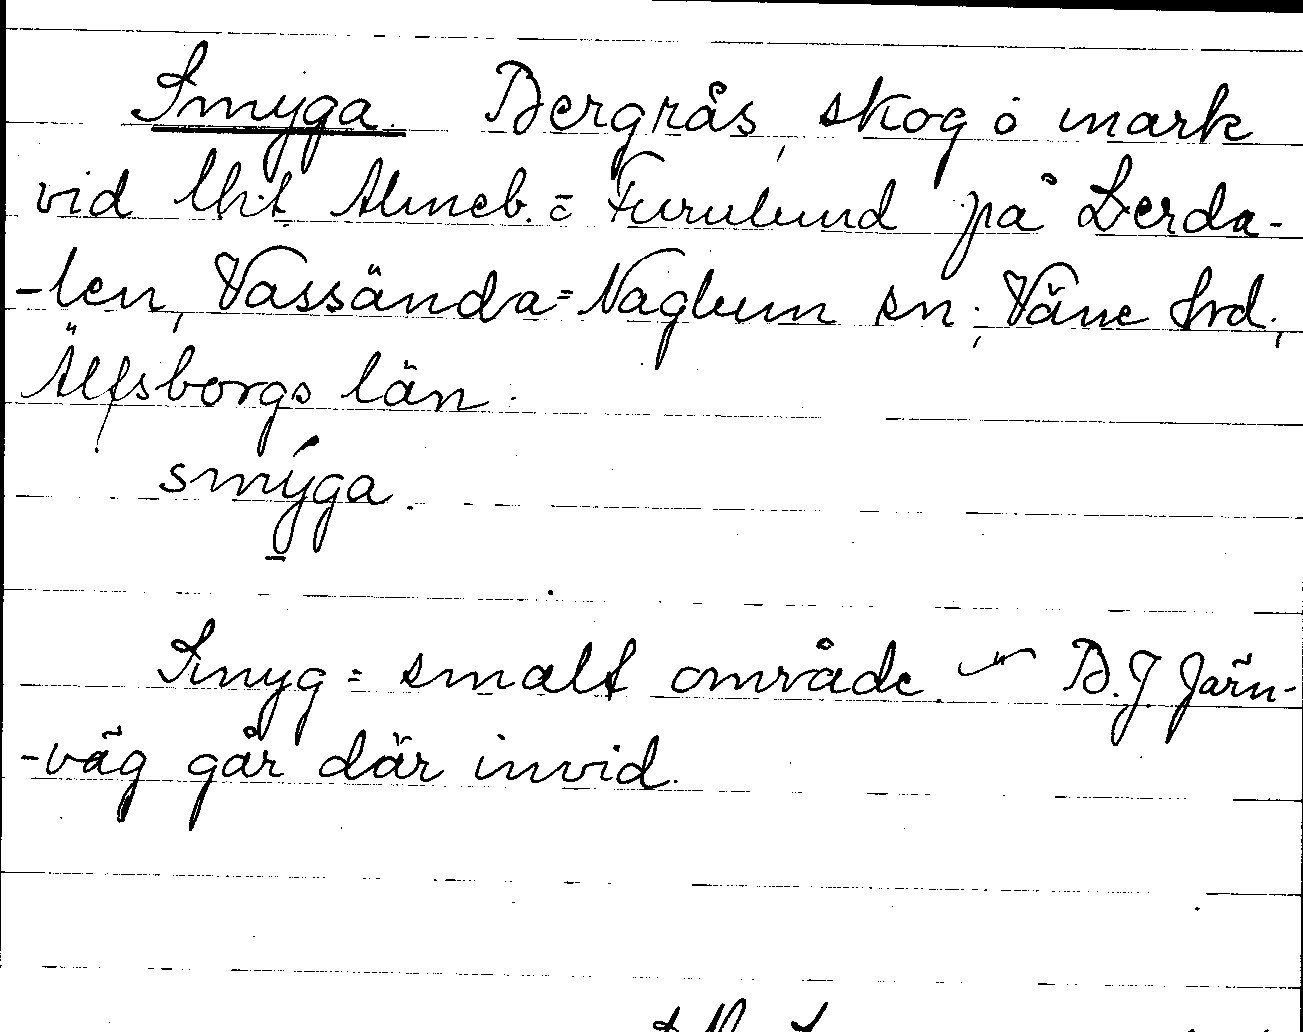 Smyga. Bergrås, skog o mark
vid lht Almeb. = Furulund på Lerda-
-len, Vassända=Naglum sn; Väne hrd;
Älfsborgs län.
smýga.
Smyg = smalt område. B.J. Järn-
-väg går där invid.